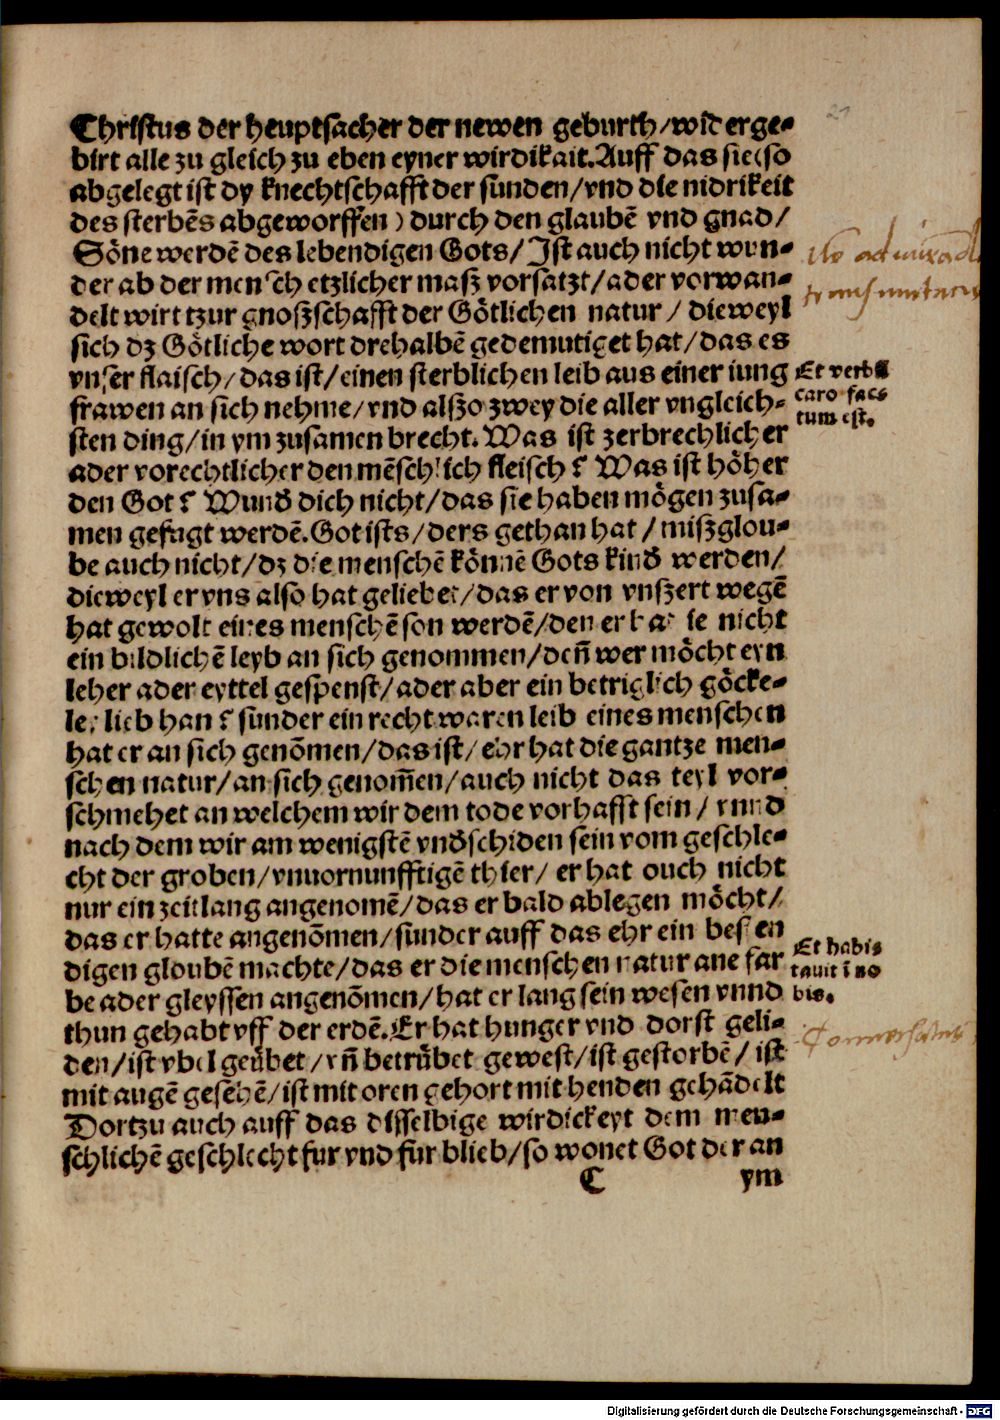 21
Christus der heuptsacher der newen geburth/wid erge-
birt alle zu gleich zu eben eyner wirdikait. Auff das sie(so
abgelegt ist dy knechtschafft der sünden/vnd die nidrikeit
des sterbēs abgeworffen) durch den glaubē vnd gnad/
Söne werdē des lebendigen Gots/Ist auch nicht wun-
der ab der mensch etzlicher masz vorsatzt/ader vorwan-
delt wirt tzur gnoszschafft der Götlichen natur/ dieweyl
sich dz Götliche wort drehalbē gedemutiget hat/das es
vnser flaisch/das ist/einen sterblichen leib aus einer iung
frawen an sich nehme/vnd alszo zwey die aller vngleich-
sten ding/in ym zusamen brecht. Was ist zerbrechlicher
ader vorechtlicher den mēschlich fleisch? Was ist höher
den Got? Wund dich nicht/das sie haben mögen zusa-
men gefugt werdē. Got ists/ders gethan hat/miszglou-
be auch nicht/dz die menschē könnē Gots kind werden/
dieweyl er vns also hat geliebet/das er von vnszert wegē
hat gewolt eines menschē son werdē/den er hat ie nicht
ein bildlichē leyb an sich genommen/den̄ wer möcht eyn
leher ader eyttel gespenst/ader aber ein betriglich göcke-
ley lieb han? sunder ein recht waren leib eines menschen
hat er an sich genōmen/das ist/ehr hat die gantze men-
schen natur/an sich genom̄en/auch nicht das teyl vor-
schmehet an welchem wir dem tode vorhafft sein/ vnnd
nach dem wir am wenigstē vnd̄schiden sein vom geschle-
cht der groben/vnuornunfftigē thier/ er hat ouch nicht
nur ein zeitlang angenomē/das er bald ablegen möcht/
das er hatte angenōmen/sunder auff das ehr ein besten
digen gloubē machte/das er die menschen natur ane far
be ader gleyssen angenōmen/hat er lang sein wesen vnnd
thun gehabt vff der erdē. Er hat hunger vnd dorst geli-
den/ist vbel geübet/vn̄ betrübet gewest/ist gestorbē/ ist
mit augē gesehē/ist mit oren gehort mit henden gehādelt
Dortzu auch auff das disselbige wirdickeyt dem men-
schlichē geschlecht fur vnd für blieb/so wonet Got der an
C ym
Et verbū
caro fac-
tum est.
Et habi-
tauit ī no
bis.
Digitalisierung gefördert durch die Deutsche Forschungsgemeinschaft - DFG